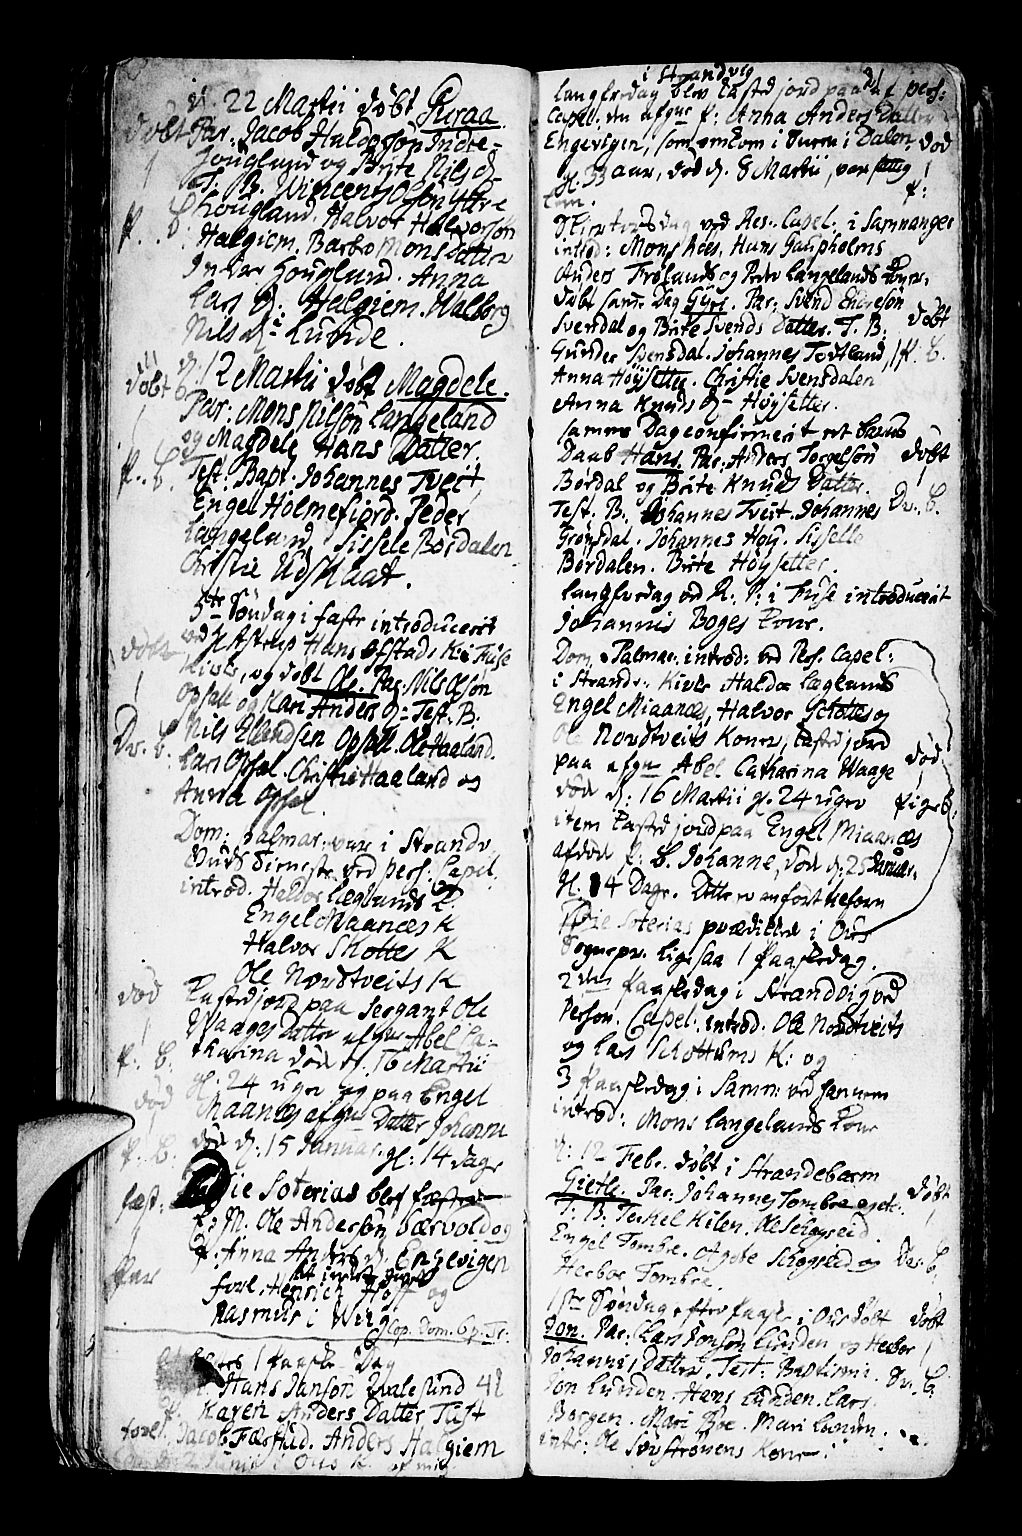 d. 22 Martii døbt Guraa.
døbt Par. Jacob Haldorsøn Indre-
1 Houglund og Brite Nils D-
T. B. Wincent Olsøn Yttre
Houglund. Halvor Halvorsøn
p. B. Halgiem. Barbro Mons Datter
Indre Houglund. Anna
Lars D: Halgiem. Walborg
Nils D- Lunde.
d. 12 Martii døbt Magdele.
døbt
Par: Mons Nilsøn Langeland
og Magdele Hans Datter.
p. B. Test: Bapt. Johannes Tveit,
Engel Holmefiord. Peder
Langeland Sissele Børdalen
Christie Udskaat.
5te Søndag i faste introduceret
døbt ved H. Astrup Hans Ofstads K. i Fuse
Kirke, og døbt Ole. Par: Nils Olsøn
1 Opsal og Kari Anders D- Test: B:
Dr. B. Nils Ellendsen Opsal. Ole Haaland.
Lars Opsal. Christie Haaland og
Anna Opsal
Dom: Palmar: var i Strandv.
Guds Tieneste ved pers: Capel.
introd. Haldor Læglunds K.
Engel Miaanæs K
Halvor Skottes K
Ole Nordtveits K
død Kasted jord paa Sergant Ole
1 Waages Datter afgne Abel Ca-
p. B. tharina død d. 16 Martii
gl. 24 uger og paa Engel
død Maanæs afgne Datter Johanne
p. B. død d: 15 Januar. gl: 14 dage
Die Soterias blef
fæst: E: M: Ole Andersøn Særvold og
1 P: Anna Anders D. Engevigen
par forl. Henrich Hoff og
Rasmus i Wiig
Cop. Dom. 6 p: Tr:
1 Paaske-Dag
Hans Janson Qvalesund 42
Karen Anders Datter Tuft
forl. Jacob Færstad. Anders Halgiem
i Strandvig
langfredag blev kasted jord paa af pers:
Capel. den afgne p: Anna Anders Datter
Engevigen, som omkom i Søen i Dalen død
gl. 33 aar, død d. 8 Martii, var 1
p:
Skiertorsdag ved Res. Capel. i Samnanger
introd: Mons Aaes, Hans Gaupholms
Anders Frølands og Peder Langelands Koner.
døbt samme Dag Guri. Par: Svend Endreson døbt
Svensdal og Brite Svends Datter. T. B. 1
Gunder Svensdal. Johannes Tveitland, p. B.
Anna Høysetter. Christie Svensdalen
Anna Knuds D- Høysetter.
samme Dag confirmeret et hiemme
Daab Hans. Par: Anders Torgelsøn døbt
Børdal og Brite Knuds Datter.
Test. B. Johannes Tveit. Johannes Dr. B.
Grønsdal. Johannes Høy. Sisselle
Børdalen. Brite Høysetter.
langfredag ved R. P. i Fuse introduceret
Johannis Boges Kone.
Dom. Palmar: introd: ved Pers. Capel:
i Strandv. Kirke Haldor Læglunds
Engel Miaanæs, Halvor Schottes og
Ole Nordtveits Koner, kasted jord
paa afgne Abel Catharina Waage død
død d: 16 Martii gl. 24 uger pige B:
item kasted jord paa Engel Miaanæs
afdøde p: B. Johanne, død d: 25 Januar.
gl. 14 Dage. Dette er anført tilforn
Die Soterias prædikede i Ous
Sognepr. ligesaa 1 Paaskedag.
2den Paaskedag i Strandvig ved
Person. Capel: introd. Ole Nordtveits
og Lars Schottums K: og
3 Paaskedag i Samn: ved samme
introd: Mons Langelands Kone
d: 12 Febr. døbt i Strandebarm
Giertle. Par: Johannes Tombre døbt
T: B: Terkel Kilen. Ole Schogseid. 1
Engel Tombre. Aagote Schogseid og Dr. B.
Herbor Tombre.
1ste Søndag efter Paaske i Ous døbt døbt
Jon. Par: Lars Jonsøn Lunden og Herbor 1
Johannis Datter. Test: Baptismi. Dr. B.
Jon Lunden. Hans Lunden. Lars
Borgen. Mari Boe. Mari Lunden.
intr: Ole Søvstrønens Kone.